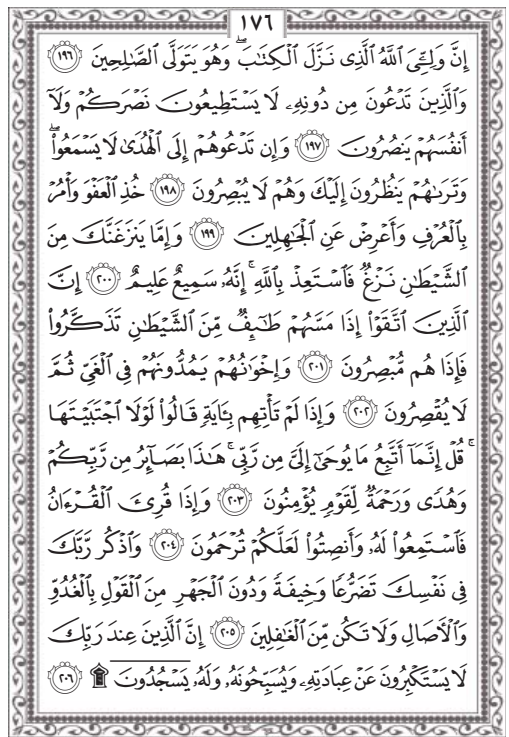 ١٧٦
إِنَّ وَلِـِّۧىَ ٱللَّهُ ٱلَّذِى نَزَّلَ ٱلْكِتَٰبَ ۖ وَهُوَ يَتَوَلَّى ٱلصَّٰلِحِينَ ١٩٦
وَٱلَّذِينَ تَدْعُونَ مِن دُونِهِۦ لَا يَسْتَطِيعُونَ نَصْرَكُمْ وَلَآ
أَنفُسَهُمْ يَنصُرُونَ ١٩٧ وَإِن تَدْعُوهُمْ إِلَى ٱلْهُدَىٰ لَا يَسْمَعُوا۟ ۖ
وَتَرَىٰهُمْ يَنظُرُونَ إِلَيْكَ وَهُمْ لَا يُبْصِرُونَ ١٩٨ خُذِ ٱلْعَفْوَ وَأْمُرْ
بِٱلْعُرْفِ وَأَعْرِضْ عَنِ ٱلْجَٰهِلِينَ ١٩٩ وَإِمَّا يَنزَغَنَّكَ مِنَ
ٱلشَّيْطَٰنِ نَزْغٌ فَٱسْتَعِذْ بِٱللَّهِ ۚ إِنَّهُۥ سَمِيعٌ عَلِيمٌ ٢٠٠ إِنَّ
ٱلَّذِينَ ٱتَّقَوْا۟ إِذَا مَسَّهُمْ طَٰٓئِفٌ مِّنَ ٱلشَّيْطَٰنِ تَذَكَّرُوا۟
فَإِذَا هُم مُّبْصِرُونَ ٢٠١ وَإِخْوَٰنُهُمْ يَمُدُّونَهُمْ فِى ٱلْغَىِّ ثُمَّ
لَا يُقْصِرُونَ ٢٠٢ وَإِذَا لَمْ تَأْتِهِم بِـَٔايَةٍ قَالُوا۟ لَوْلَا ٱجْتَبَيْتَهَا
ۚ قُلْ إِنَّمَآ أَتَّبِعُ مَا يُوحَىٰٓ إِلَىَّ مِن رَّبِّى ۚ هَٰذَا بَصَآئِرُ مِن رَّبِّكُمْ
وَهُدًى وَرَحْمَةٌ لِّقَوْمٍ يُؤْمِنُونَ ٢٠٣ وَإِذَا قُرِئَ ٱلْقُرْءَانُ
فَٱسْتَمِعُوا۟ لَهُۥ وَأَنصِتُوا۟ لَعَلَّكُمْ تُرْحَمُونَ ٢٠٤ وَٱذْكُر رَّبَّكَ
فِى نَفْسِكَ تَضَرُّعًا وَخِيفَةً وَدُونَ ٱلْجَهْرِ مِنَ ٱلْقَوْلِ بِٱلْغُدُوِّ
وَٱلْءَاصَالِ وَلَا تَكُن مِّنَ ٱلْغَٰفِلِينَ ٢٠٥ إِنَّ ٱلَّذِينَ عِندَ رَبِّكَ
لَا يَسْتَكْبِرُونَ عَنْ عِبَادَتِهِۦ وَيُسَبِّحُونَهُۥ وَلَهُۥ يَسْجُدُونَ ۩ ٢٠٦